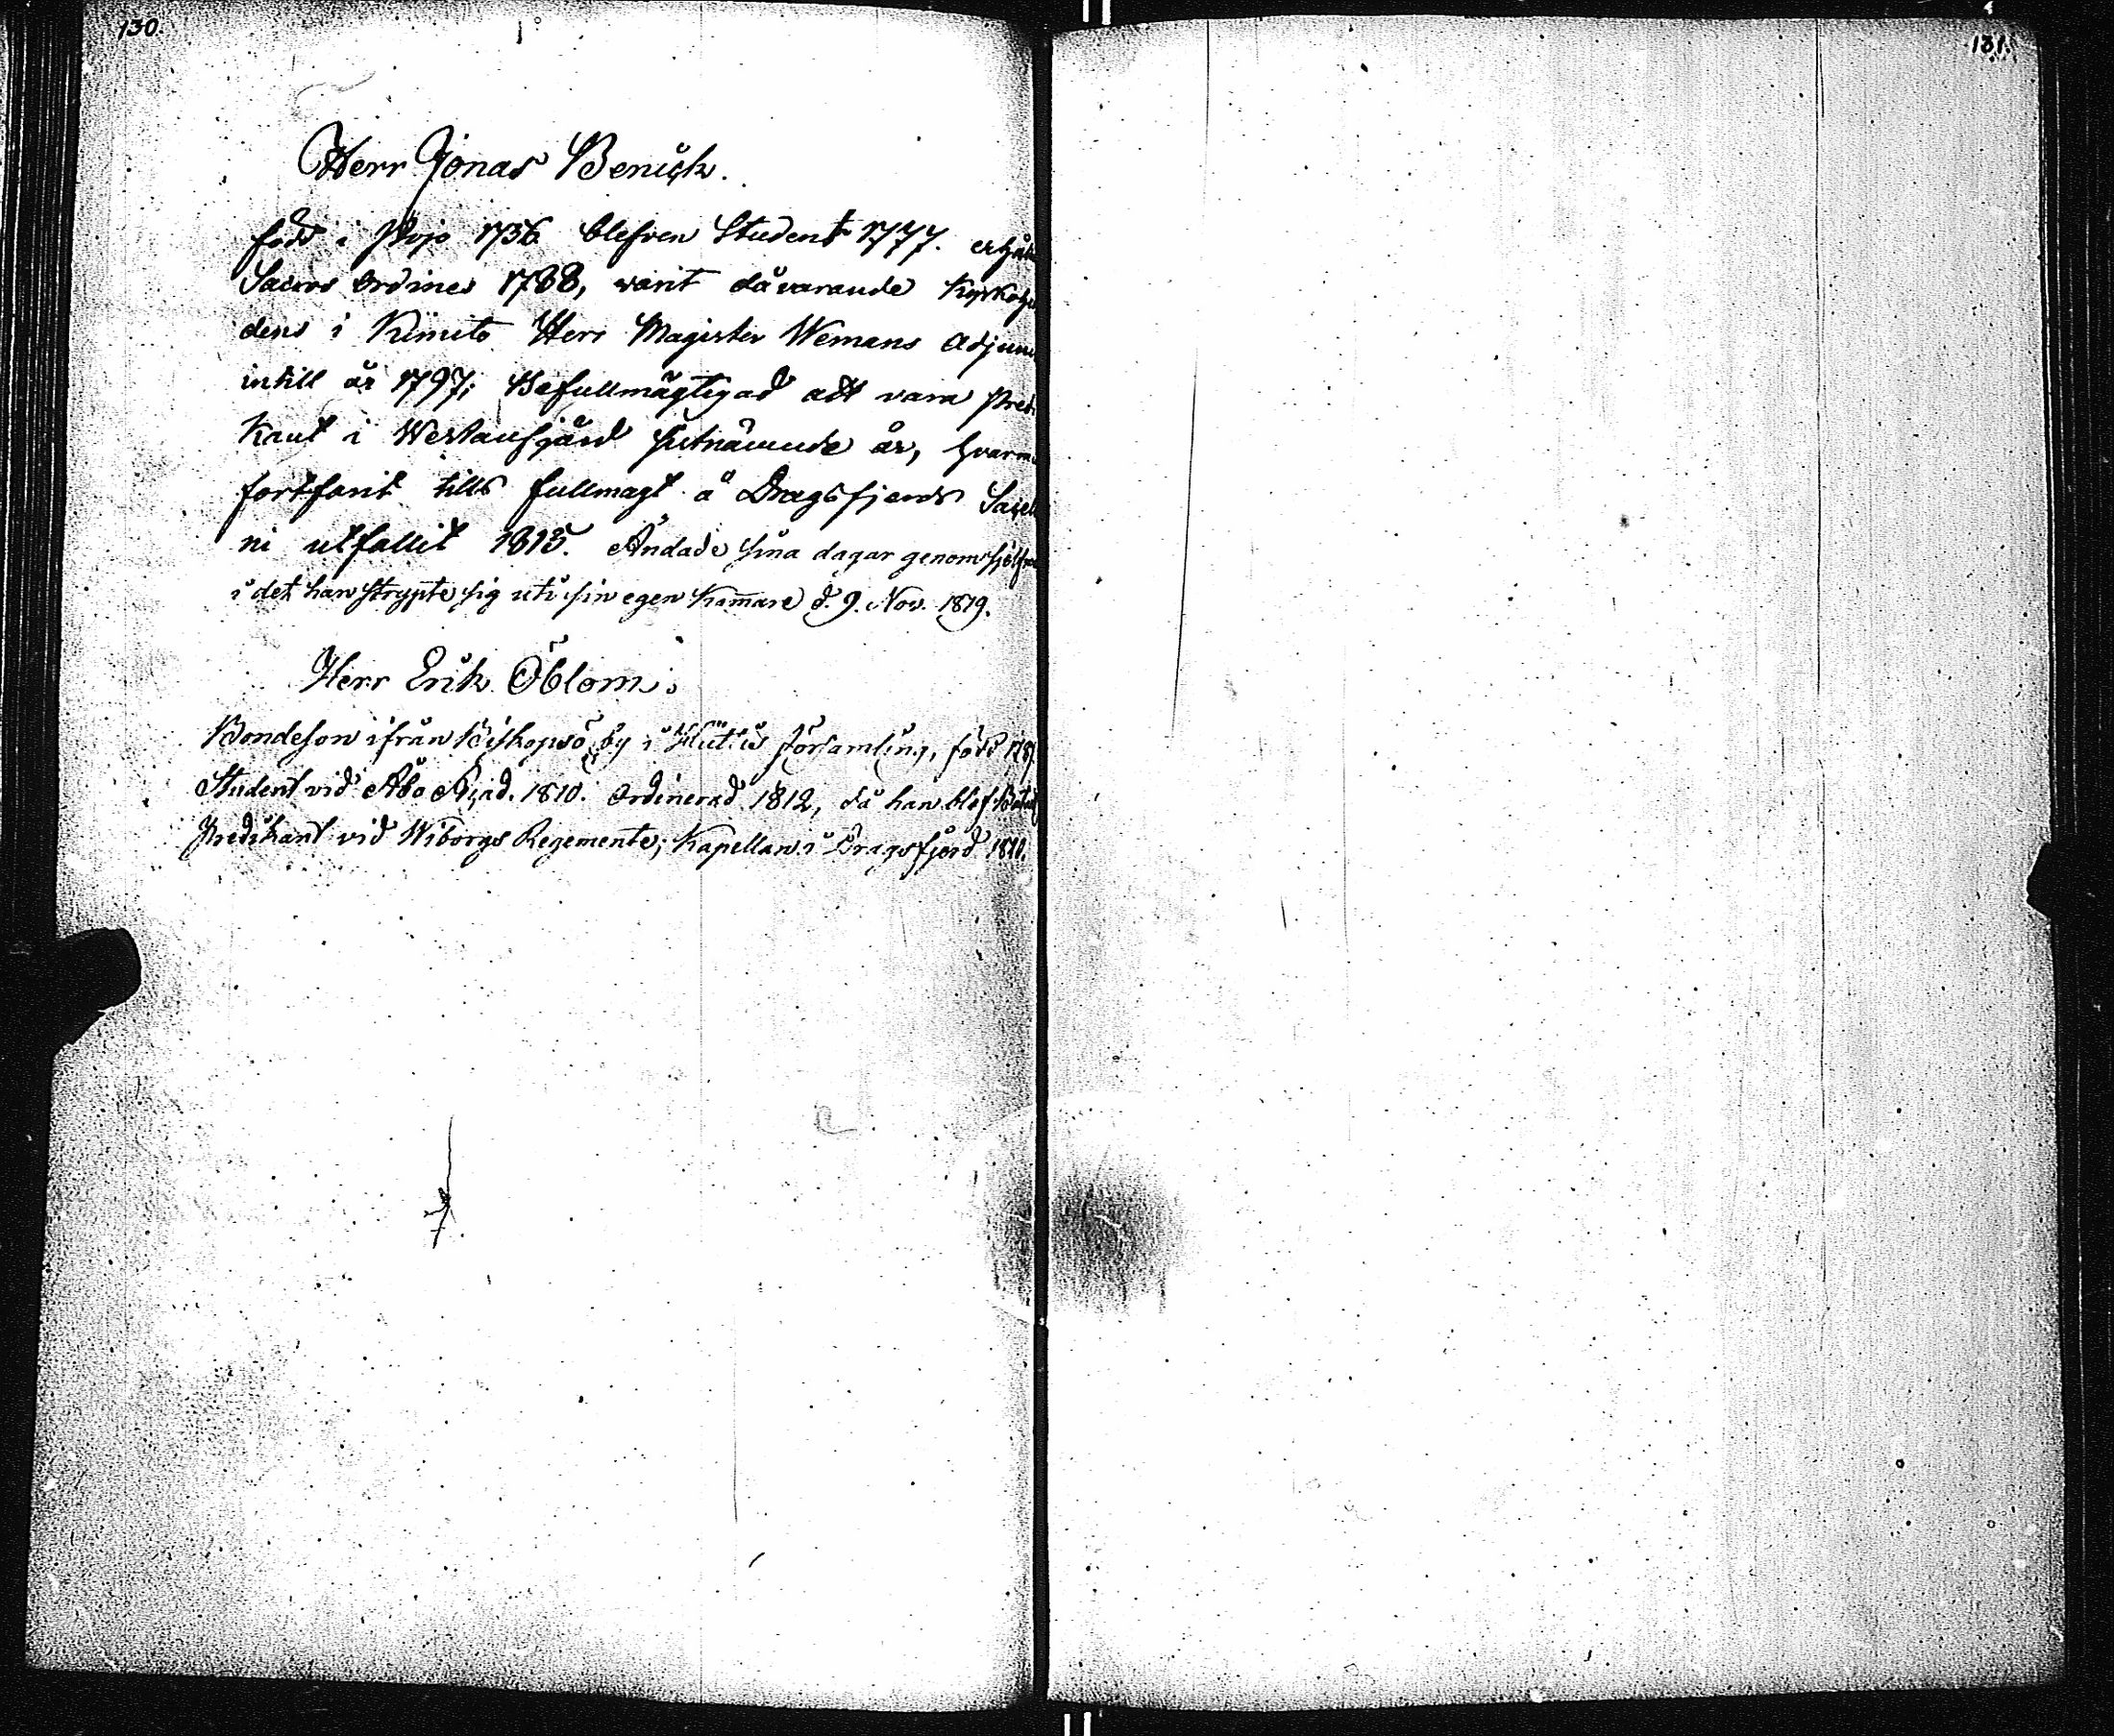 130.
131.
Herr Jonas Benick.
född i Pojo 1756 blefven Student 1777. erhållit
Sacros Ordines 1788, varit dåvarande Kyrkoher
dens i Kimito Herr Magister Wemans Adjunct
intill år 1797; Befullmägtigad att vara Predi
kant i Westanfjärd sistnämnde år, hvarmed
fortfarit tills fullmagt å Dragsfjerds Sacella
ni utfallit 1815. Ändade sina dagar genom sjelfmord
i det han strypte sig uti sin egen Kammare d. 9. Nov. 1819.
Herr Erik Öblom.
Bondeson ifrån Biskopsö by i Hitis församling, född 1787.
Student vid Åbo Acad. 1810. Ordinerad 1812, då han blef
Predikant vid Wiborgs Regemente; Kapellan i Dragsfjerd